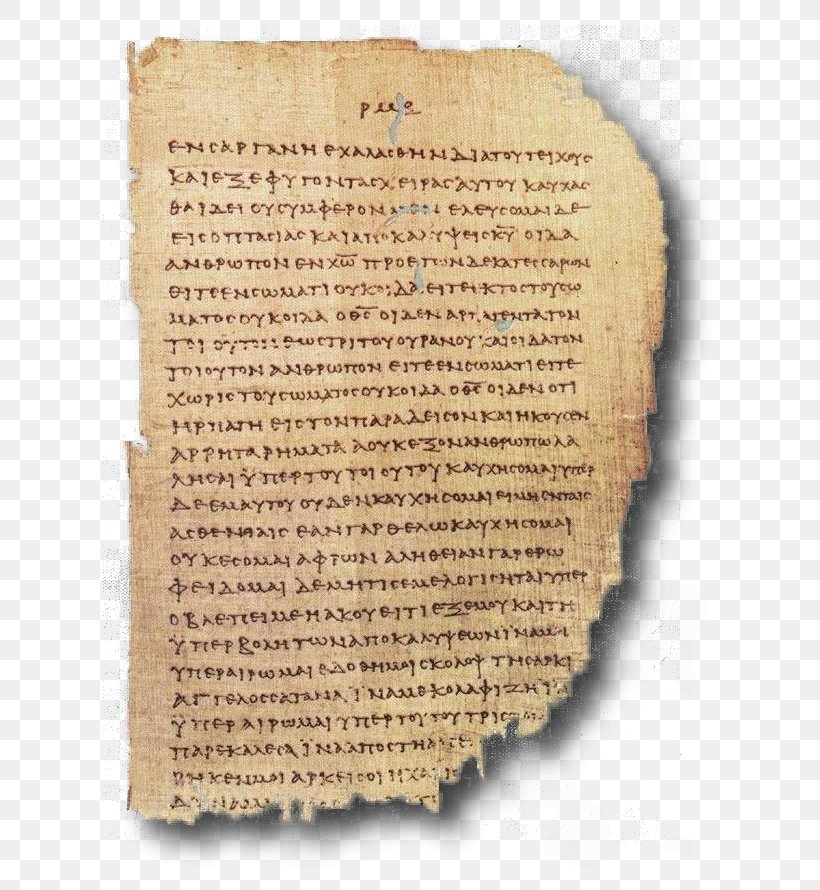 ρμε
ΕΝΣΑΡΓΑΝΗΕΧΑΛΑΣΘΗΝΔΙΑΤΟΥΤΕΙΧΟΥΣ
ΚΑΙΕΞΕΦΥΓΟΝΤΑΣΧΕΙΡΑΣΑΥΤΟΥΚΑΥΧΑΣ
ΘΑΙΔΕΙΟΥΣΥΜΦΕΡΟΝ ΕΛΕΥΣΟΜΑΙΔΕ
ΕΙΣΟΠΤΑΣΙΑΣΚΑΙΑΠΟΚΑΛΥΨΕΙΣΚΥ ΟΙΔΑ
ΑΝΘΡΩΠΟΝΕΝΧΩ ΠΡΟΕΤΩΝΔΕΚΑΤΕΣΣΑΡΩΝ
ΕΙΤΕΕΝΣΩΜΑΤΙΟΥΚΟΙΔΑΕΙΤΕΕΚΤΟΣΤΟΥΣΩ
ΜΑΤΟΣΟΥΚΟΙΔΑ ΟΘΣ ΟΙΔΕΝΑΡΠΑΓΕΝΤΑΤΟΝ
ΤΟΙΟΥΤΟΝΕΩΣΤΡΙΤΟΥΟΥΡΑΝΟΥΚΑΙΟΙΔΑΤΟΝ
ΤΟΙΟΥΤΟΝΑΝΘΡΩΠΟΝΕΙΤΕΕΝΣΩΜΑΤΙΕΙΤΕ
ΧΩΡΙΣΤΟΥΣΩΜΑΤΟΣΟΥΚΟΙΔΑ ΟΘΣ ΟΙΔΕΝΟΤΙ
ΗΡΠΑΓΗΕΙΣΤΟΝΠΑΡΑΔΕΙΣΟΝΚΑΙΗΚΟΥΣΕΝ
ΑΡΡΗΤΑΡΗΜΑΤΑΑΟΥΚΕΞΟΝΑΝΘΡΩΠΩΛΑ
ΛΗΣΑΙΫΠΕΡΤΟΥΤΟΙΟΥΤΟΥΚΑΥΧΗΣΟΜΑΙΥΠΕΡ
ΔΕΕΜΑΥΤΟΥΟΥΔΕΝΚΑΥΧΗΣΟΜΑΙΕΙΜΗΕΝΤΑΙΣ
ΑΣΘΕΝΕΙΑΙΣΕΑΝΓΑΡΘΕΛΩΚΑΥΧΗΣΟΜΑΙ
ΟΥΚΕΣΟΜΑΙΑΦΡΩΝΑΛΗΘΕΙΑΝΓΑΡΕΡΩ
ΦΕΙΔΟΜΑΙΔΕΜΗΤΙΣΕΜΕΛΟΓΙΣΗΤΑΙΥΠΕΡ
ΟΒΛΕΠΕΙΜΕΗΑΚΟΥΕΙΤΙΕΞΕΜΟΥΚΑΙΤΗ
ΫΠΕΡΒΟΛΗΤΩΝΑΠΟΚΑΛΥΨΕΩΝΪΝΑΜΗ
ΥΠΕΡΑΙΡΩΜΑΙΕΔΟΘΗΜΟΙΣΚΟΛΟΨΤΗΣΑΡΚΙ
ΑΓΓΕΛΟΣΣΑΤΑΝΑΪΝΑΜΕΚΟΛΑΦΙΖΗΪΝΑ
ΫΠΕΡΑΙΡΩΜΑΙΥΠΕΡΤΟΥΤΟΥΤΡΙΣΤΟΝ
ΠΑΡΕΚΑΛΕΣΑΪΝΑΑΠΟΣΤΗΑΠΕ
ΡΗΚΕΝΜΟΙΑΡΚΕΙΣΟΙΗΧΑΡΙΣ
ΔΥΝΑΜΙΣ